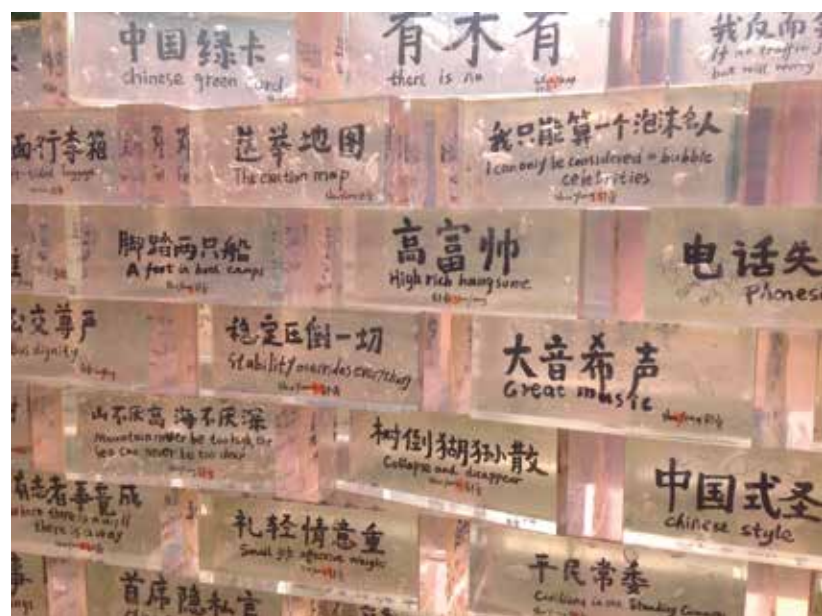 中国绿卡
chinese green card
有木有
there is no
我反而
If no traffic
but will worry
面行李箱
选举地图
The election map
我只能算一个泡沫名人
I can only be considered a bubble
celebrities
脚踏两只船
A foot in both camps
高富帅
High rich hangsome
电话失
Phones
公交尊严
bus dignity
稳定压倒一切
Stability overrides everything
大音希声
Great music
山不厌高 海不厌深
Mountain never be too high, the
Sea can never be too deep
树倒猢狲散
Collapse and disappear
中国式圣
chinese style
有志者事竟成
where there is a will
there is away
礼轻情意重
Small gift affective weight
平民常委
Civilians in the Standing Comm
首席隐私官